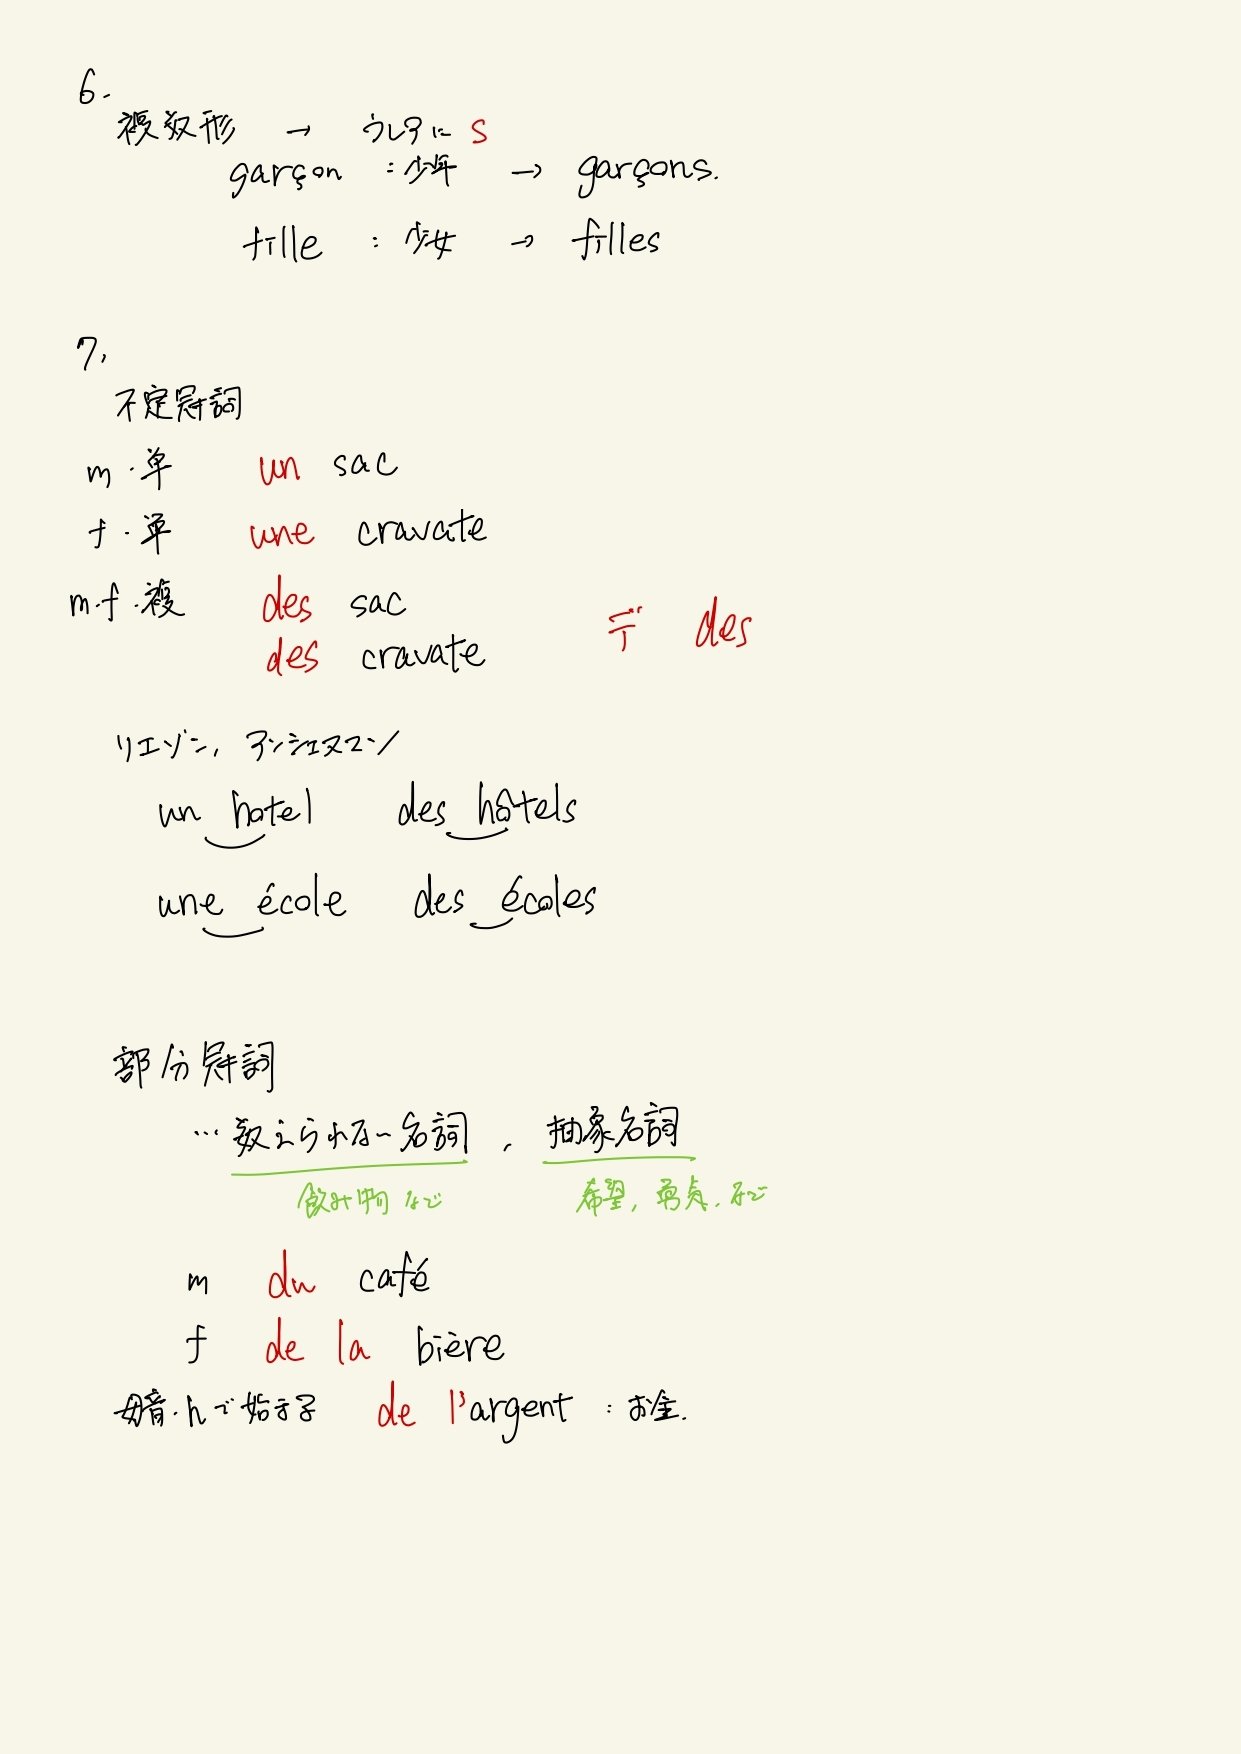 6.
複数形 → うしろに s
garçon : 少年 → garçons.
fille : 少女 → filles
7,
不定冠詞
m・単 un sac
f・単 une cravate
m.f.複 des sac
des cravate
デ des
リエゾン, アンシェヌマン
un hotel des hôtels
une école des écoles
部分冠詞
… 数えられない名詞, 抽象名詞
飲み物 など 希望, 勇気, など
m du café
f de la bière
母音・hで始まる de l'argent : お金.